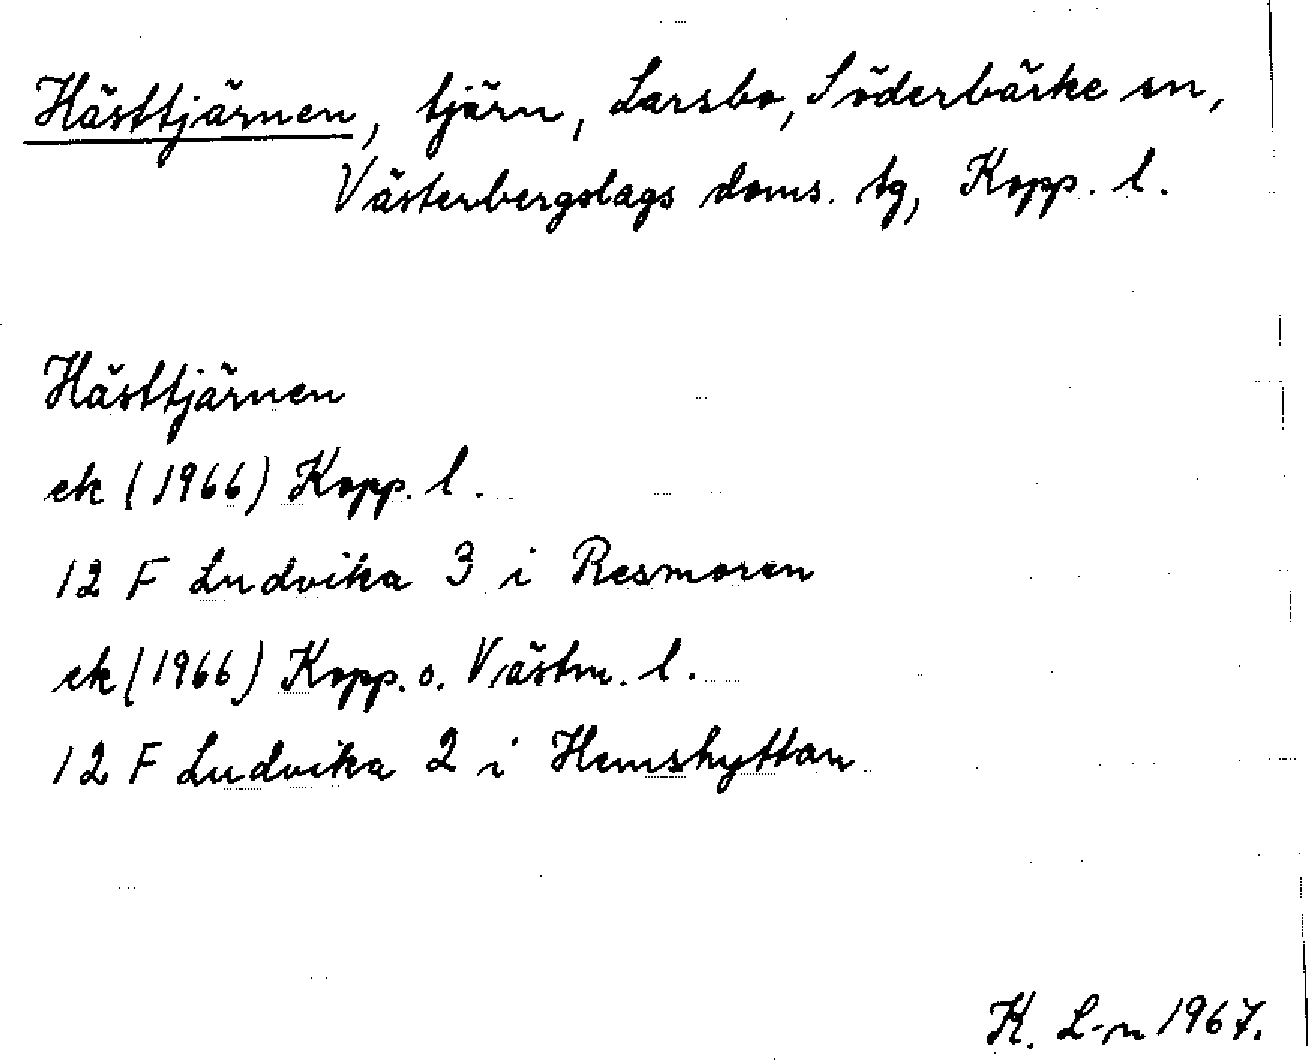 Hästtjärnen, tjärn, Larsbo, Söderbärke sn,
Västerbergslags doms. tg, Kopp. l.
Hästtjärnen
ek (1966) Kopp. l.
12 F Ludvika 3 i Resmoren
ek (1966) Kopp. o. Västm. l.
12 F Ludvika 2 i Hemshyttan
K. L-n 1967.